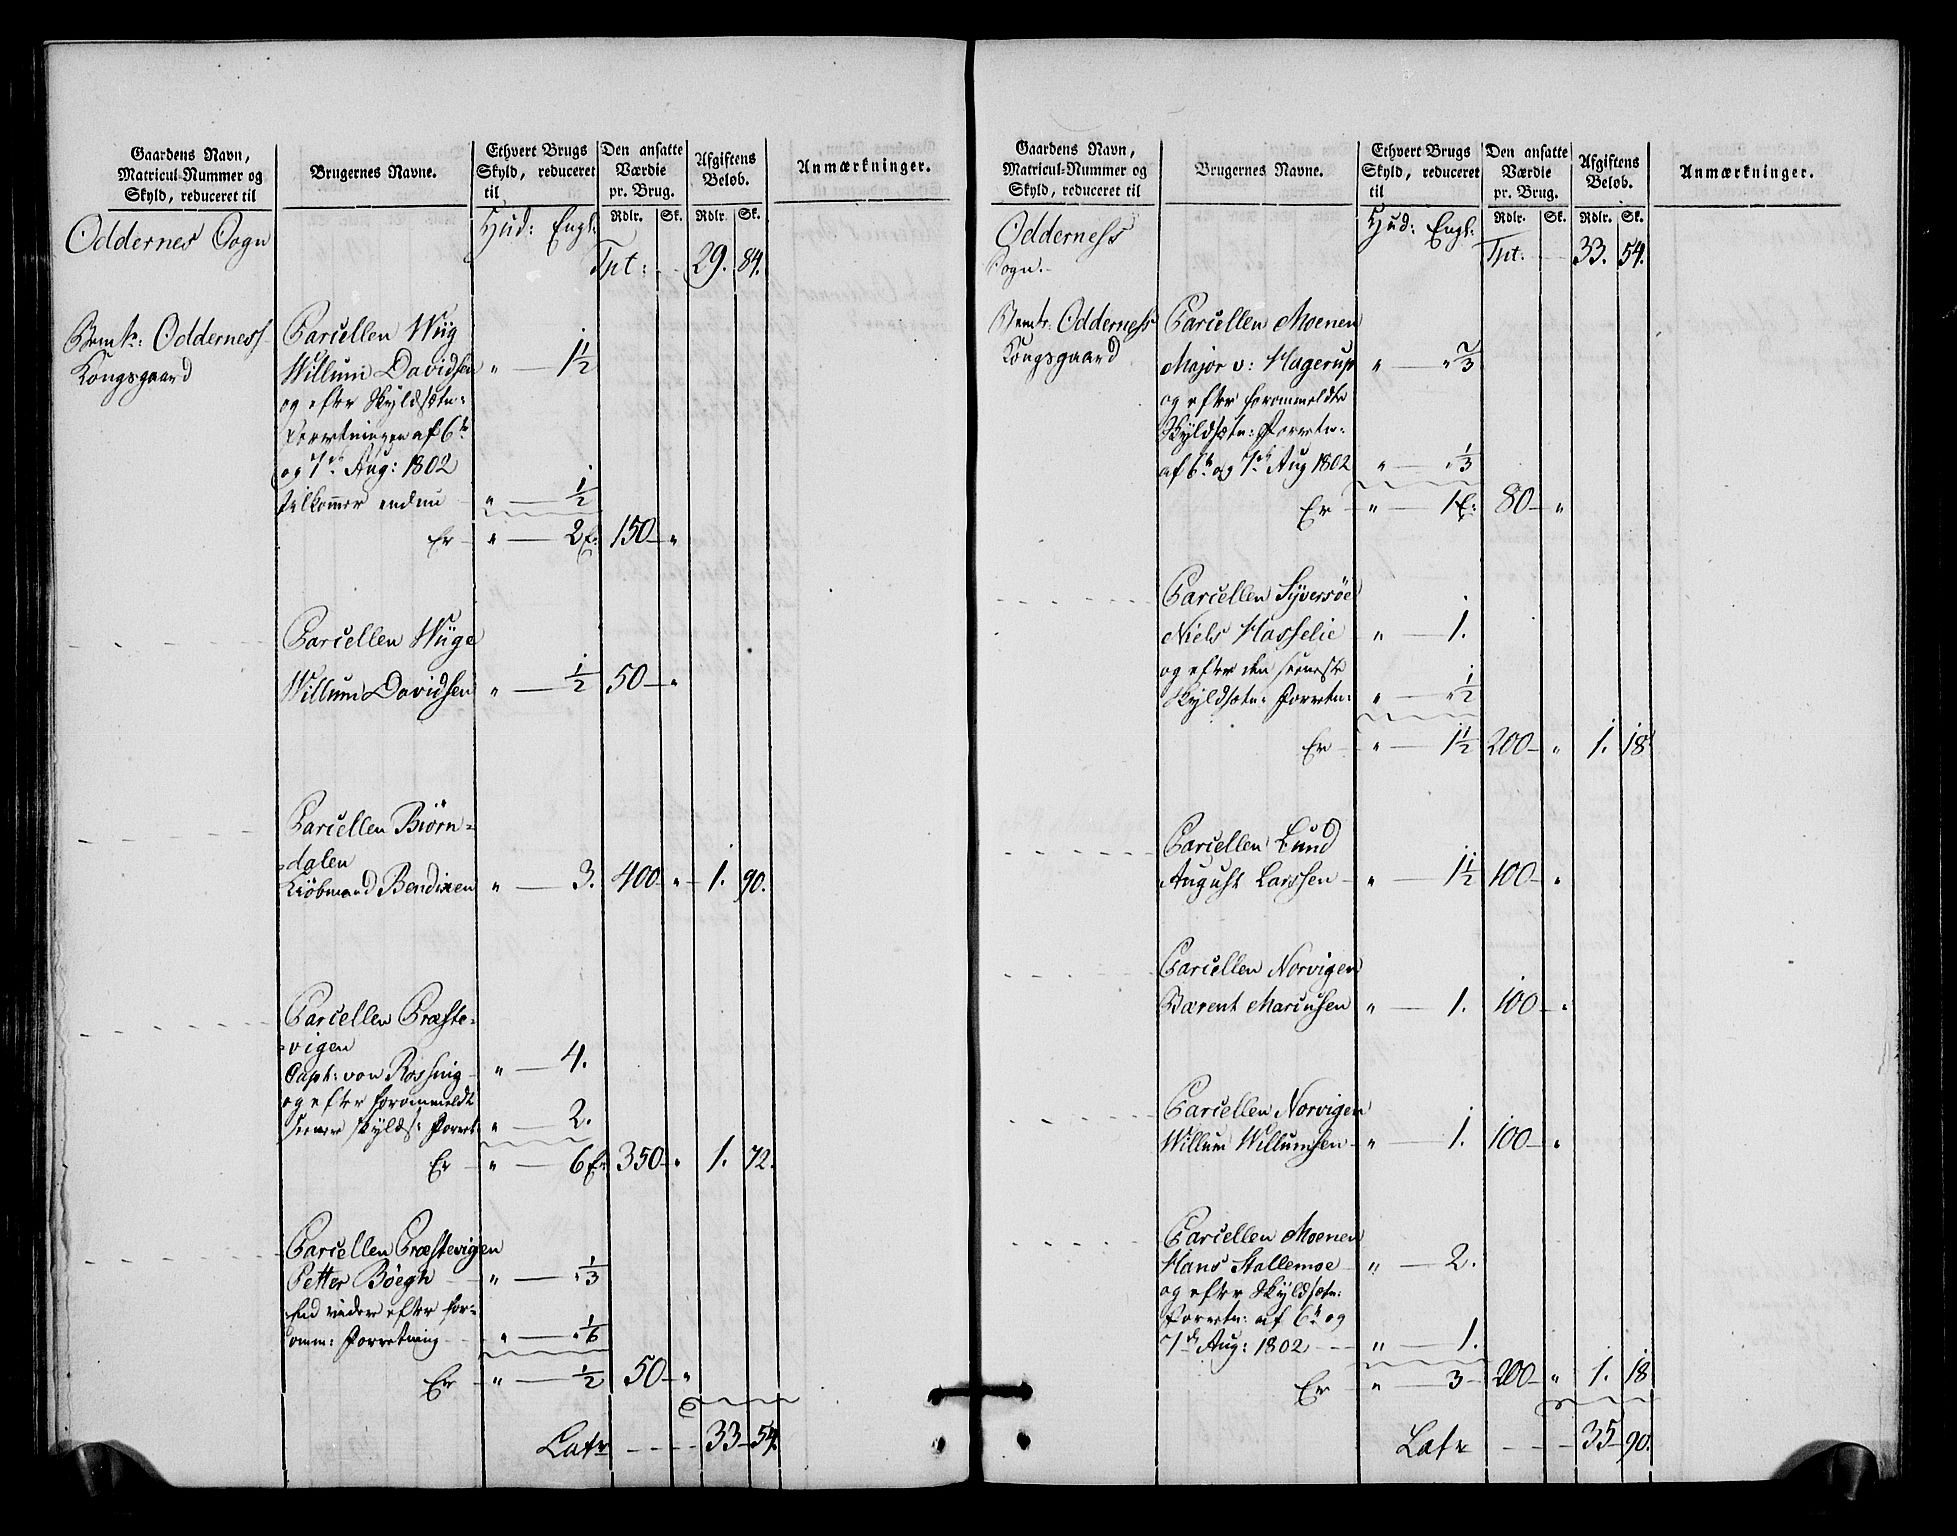 Gaardens Navn,
Matricul-Nummer og
Skyld, reduceret til
Brugernes Navne.
Ethvert Brugs
Skyld, reduceret
til
Den ansatte
Værdie
pr. Brug.
Afgiftens
Beløb.
Anmærkninger.
Rdlr. Sk. Rdlr. Sk.
Oddernes Sogn
Hud: Engl:
Tpt: 29. 84.
Bem: Odderness
Kongsgaard
Parcellen Wiig
Willum Davidsen " — 1 1/2
og efter Skyldsætn:
Forretningen af 6te
og 7de Aug: 1802
tilkommer endnu " — 1/2
Er " — 2 150 "
Parcellen Wiige
Willum Davidsen " — 1/2 50 "
Parcellen Biørn=
dalen
Kiøbmand Bendixen " — 3. 400 " 1. 90.
Parcellen Præste=
vigen
Capt: von Rossing " — 4.
og efter forommeldt
senere Skylds: Forret: " — 2.
Er " — 6 350 " 1. 72.
Parcellen Præstevigen
Petter Böegh " — " 1/3
end videre efter for=
omm: Forretning " — " 1/6
Er " — 1/2 50 "
Latr 33 54.
Gaardens Navn,
Matricul-Nummer og
Skyld, reduceret til
Brugernes Navne.
Ethvert Brugs
Skyld, reduceret
til
Den ansatte
Værdie
pr. Brug.
Afgiftens
Beløb.
Anmærkninger.
Rdlr. Sk. Rdlr. Sk.
Odderness
Sogn.
Hud: Engl:
Tpt: 33. 54.
Bemtr: Odderness
Kongsgaard
Parcellen Moenen
Major v: Hagerup " — " 2/3
og efter forommeldte
Skyldsætn: Forretn:
af 6te og 7de Aug 1802 " — " 1/3
Er " — 1 80 "
Parcellen Syversöe
Niels Hasselie " — 1.
og efter den seeneste
Skyldsætn: Forretn: " — " 1/2
Er " — 1 1/2 200 " 1. 18.
Parcellen Lund
August Larssen " — 1 1/2 100 "
Parcellen Norvigen
Bærent Marcussen " — 1. 100 "
Parcellen Norvigen
Willum Willumsen " — 1. 100 "
Parcellen Moenen
Hans Stallemoe " — 2.
og efter Skyldsætn:
Forretn: af 6te og
7de Aug: 1802 " — 1.
Er " — 3 200 " 1. 18
Latr 35 90.